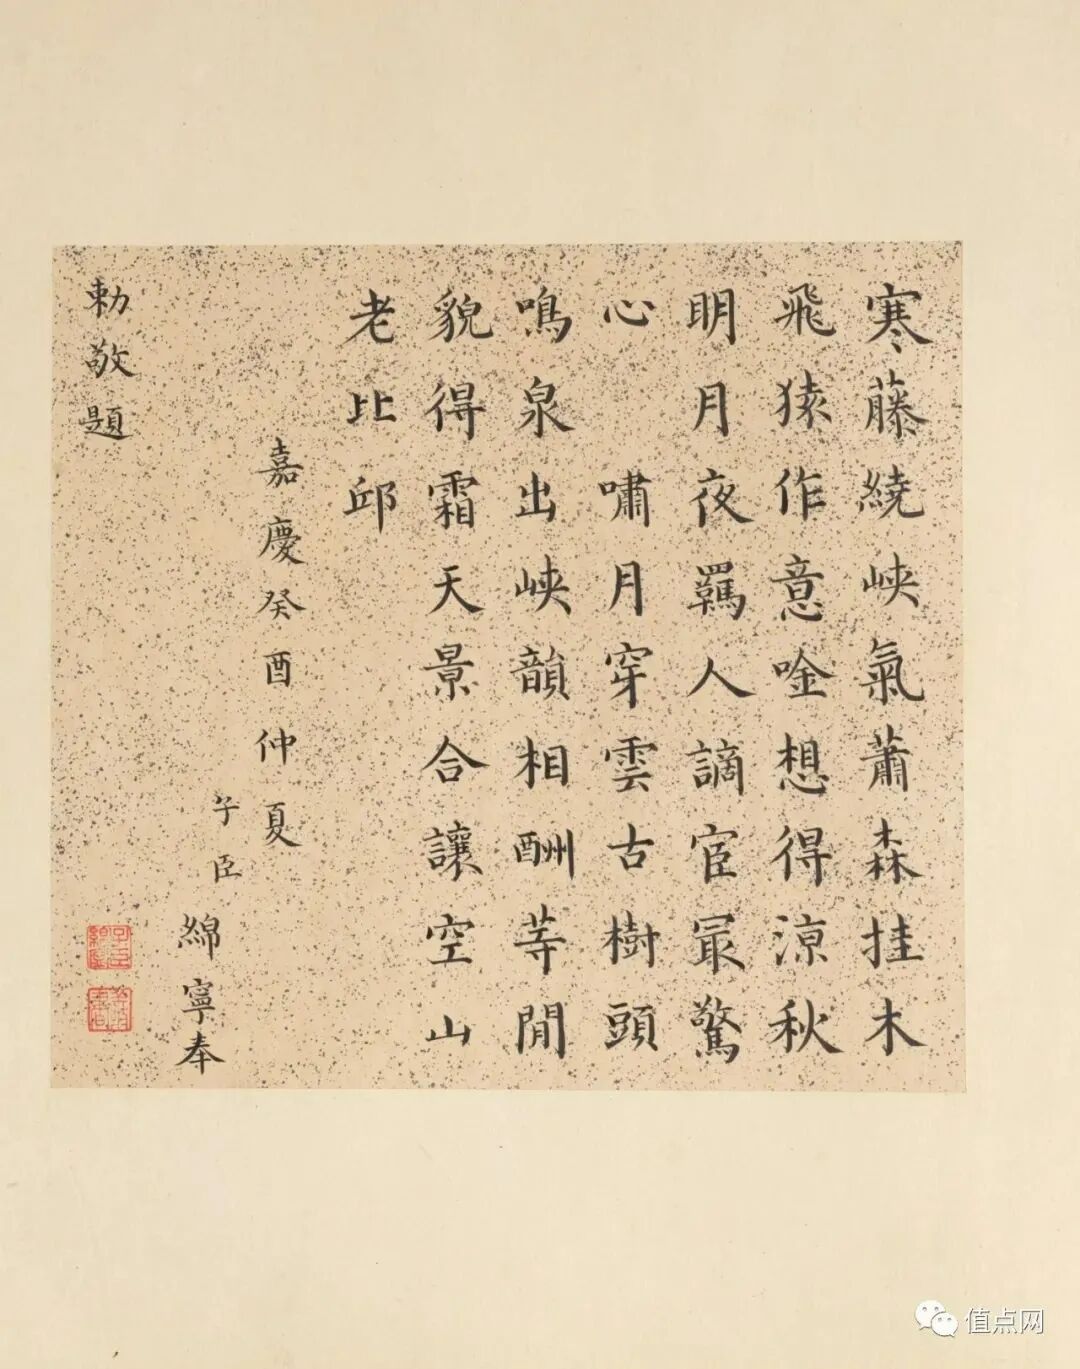 寒藤繞峽氣蕭森挂木
飛猿作意唫想得涼秋
明月夜羈人謫宦冣驚
心　嘯月穿雲古樹頭
鳴泉出峽韻相酬等閒
貌得霜天景合讓空山
老比邱
嘉慶癸酉仲夏
子臣
綿寧奉
勅敬題
值点网